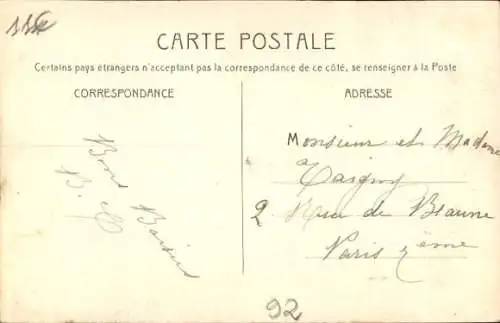 CARTE POSTALE
Certains pays étrangers n'acceptant pas la correspondance de ce côté, se renseigner à la Poste
CORRESPONDANCE
ADRESSE
Bons Baisers
Monsieur et Madame
2 Rue de Beaune
Paris 7ème
92